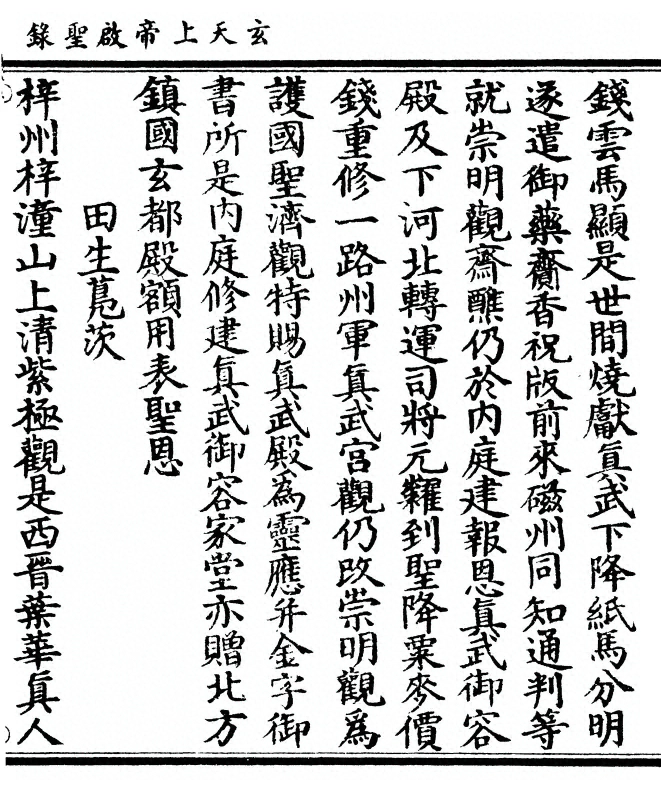 玄天上帝啟聖錄
錢雲馬顯是世間燒獻真武下降紙馬分明
遂遣御藥齎香祝版前來磁州同知通判等
就崇明觀齋醮仍於內庭建報恩真武御容
殿及下河北轉運司將元糴到聖降粟麥價
錢重修一路州軍真武宮觀仍改崇明觀爲
護國聖濟觀特賜真武殿為靈應并金字御
書所是内庭修建真武御容家堂亦贈北方
鎮國玄都殿額用表聖恩
田生莬茨
梓州梓潼山上清紫極觀是西晉葉華真人